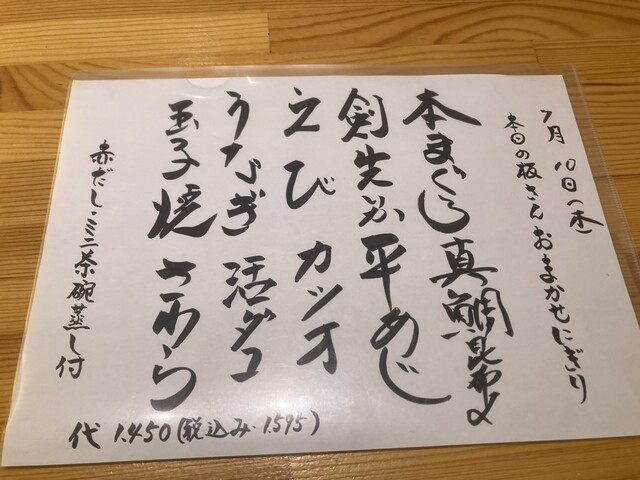 7月10日(木)
本日の板さんおまかせにぎり
本まぐろ 真鯛昆布〆
剣先いか 平あじ
えび カツオ
うなぎ 活ダコ
玉子焼 さわら
赤だし・ミニ茶碗蒸し付
代 1.450(税込み1.595)